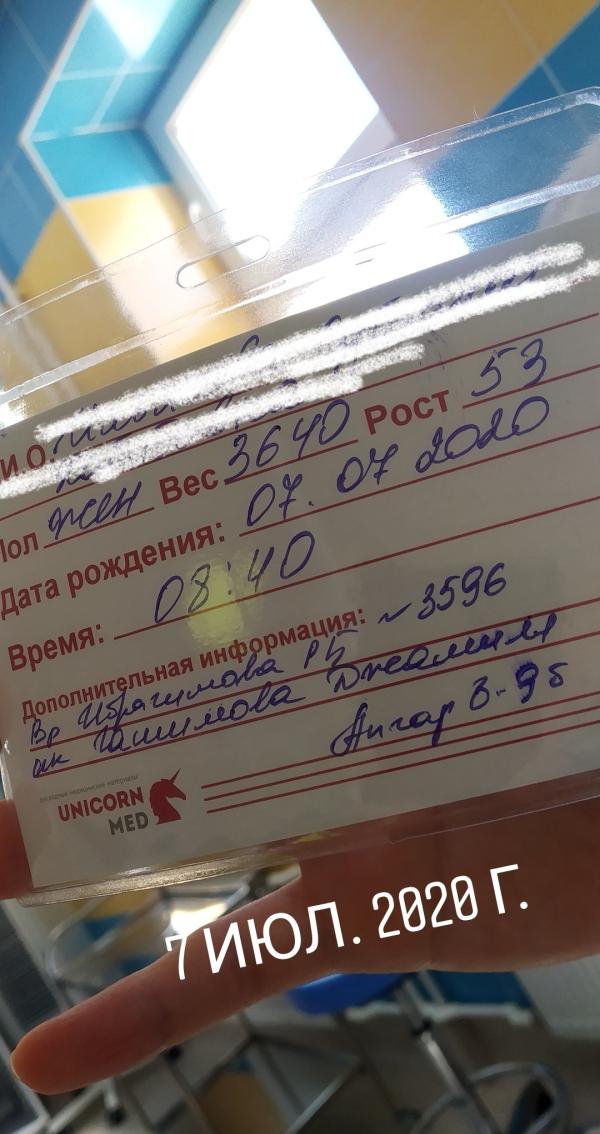 И.О.
Пол жен Вес 3640 Рост 53
Дата рождения: 07. 07 2020
Время: 08:40
Дополнительная информация: ~3596
Вр Ибрагимова РБ
ак Гашимова Джамиля
Ангар 8-9б
расходные медицинские материалы
UNICORN
MED
7 ИЮЛ. 2020 Г.